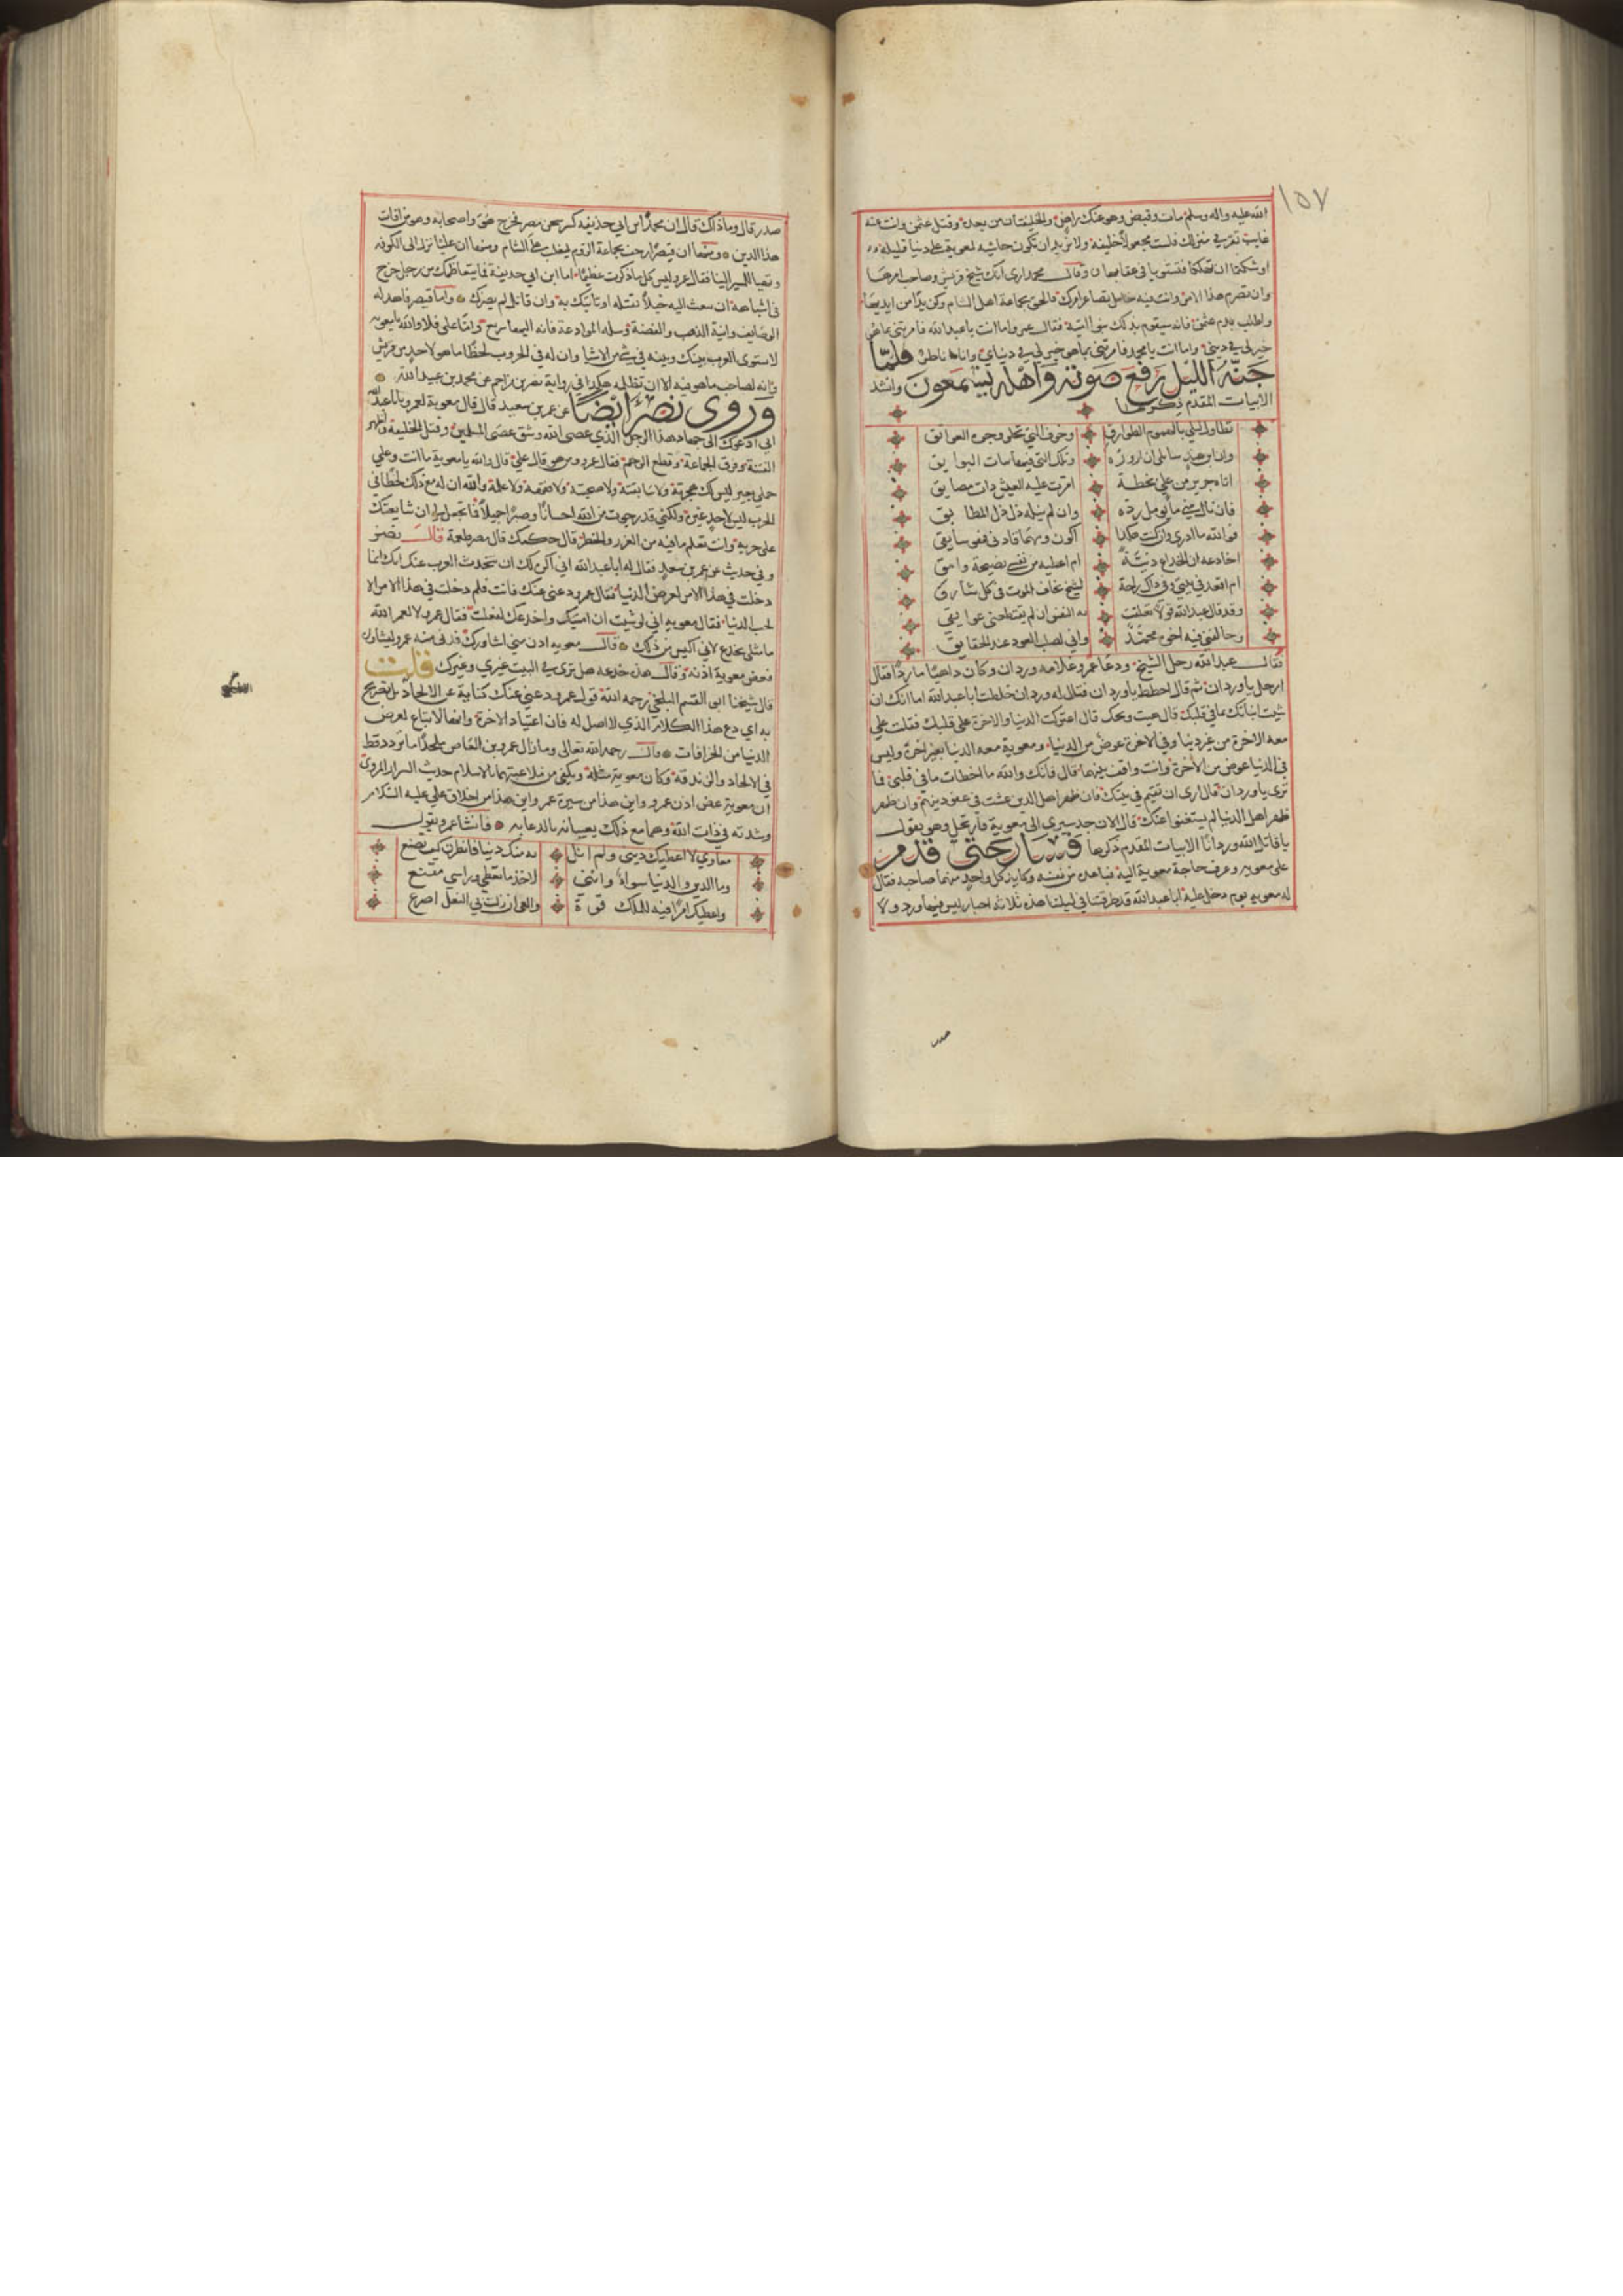 ١٥٧
الله عليه واله وسلم مات وقبض وهو عنك راض والخليفتان من بعده وقتل عثمن وانت عنه
غايب تقر في منزلك فلست مجعولا خليفة ولا تريد ان تكون حاشية لمعوية على دنيا قليلة
اوشكتما ان تهلكا فتستويا في عقابها وقال محمد ارى انك شيخ قريش وصاحب امرها
وان تصرم هذا الامر وانت فيه خامل تصاغر امرك فالحق بجماعة اهل الشام وكن يدا من ايديها
واطلب بدم عثمن فانه سيقوم بذلك بنو امية فقال عمرو اما انت يا عبد الله فامرتني بما هو
خير لي في ديني واما انت يا محمد فامرتني بما هو خير لي في دنياي وانا ناظر فلما
جنه الليل رفع صوته واهله يستمعون وانشد
الابيات المقدم ذكرها
تطاول ليلي بالهموم الطوارق وخوف التي تجلو وجوه العواتق
وان ابن هند سايلي ان ازوره وتلك التي فيها بنات البوايق
اتاه جرير من علي بخطة امرت عليه العيش ذات مضايق
فان نال مني ما يؤمل رده وان لم ينله ذل ذل المطابق
فوالله ما ادري وما كنت هكذا اكون ومهما قادني فهو سابقي
اخادعه ان الخداع دنية ام اعطيه من نفسي نصيحة وامق
ام اقعد في بيتي وفي ذاك راحة لشيخ يخاف الموت في كل شارق
وقد قال عبد الله قولا تعلقت به النفس ان لم يقتطعني عوايقي
وخالفني فيه اخوه محمد واني لصلب العود عند الحقايق
فقال عبد الله رحل الشيخ ودعا عمرو غلامه وردان وكان داهيا ماردا فقال
ارحل يا وردان ثم قال احطط يا وردان فقال له وردان خلطت ابا عبد الله اما انك ان
شيت انباتك بما في قلبك قال هيت ويحك قال اعتركت الدنيا والاخرة على قلبك فقلت علي
معه الاخرة من غير دنيا وفي الاخرة عوض من الدنيا ومعوية معه الدنيا بغير اخرة وليس
في الدنيا عوض من الاخرة وانت واقف بينهما قال فانك والله ما اخطات ما في قلبي فما
ترى يا وردان قال ارى ان تقيم في بيتك فان ظهر اهل الدين عشت في عفو دينهم وان ظهر
ظهر اهل الدنيا لم يستغنوا عنك قال الان حد سيري الى معوية فارتحل وهو يقول
يا قاتل الله وردانا الابيات المقدم ذكرها فسار حتى قدم
على معويه وعرف حاجة معوية اليه فباعده من نفسه وكايد كل واحد منهما صاحبه فقال
له معويه يوم دخل عليه ابا عبد الله قد طرقتنا في ليلتنا هذه ثلاثة اخبار ليس فيها ورد ولا
صدر
صدر قال وما ذاك قال ان محمد ابن ابي حذيفة كسر سجن مصر فخرج هو واصحابه وهو من افات
هذا الدين ومنها ان قيصر زحف بجماعة الروم ليغلب على الشام ومنها ان عليا نزل الى الكوفه
وتهيا المسير الينا فقال عمرو ليس كل ما ذكرت عظيما اما ابن ابي حذيفة فما يتعاظمك من رجل خرج
في اشباهه ان تبعث اليه خيلا تقتله او تاتيك به وان قاتل لم يضرك واما قيصر فاهد له
الوصايف وانية الذهب والفضة وسله الموادعة فانه اليها سريع واما علي فلا والله يا معويه
لا تستوى العرب بينك وبينه في شي من الاشيا وان له في الحروب لحظا ما هو لاحد من قريش
وانه لصاحب ما هو فيه الا ان تظلمه هكذا في رواية نصر بن مزاحم عن محمد بن عبيد الله
وروى نصر ايضا عن عمر بن سعيد قال قال معوية لعمرو يا ابا عبد الله
اني ادعوك الى جهاد هذا الرجل الذي عصى الله وشق عصى المسلمين وقتل الخليفة واظهر
الفتنة وفرق الجماعة وقطع الرحم فقال عمرو من هو قال علي قال والله يا معوية ما انت وعلي
حملي بعير ليس لك هجرته ولا سابقته ولا صحبته ولا فقهه ولا علمه والله ان له مع ذلك لحظا في
الحرب ليس لاحد غيره ولكني قد رجوت من الله احسانا وصبرا جميلا فما تجعل لي ان شايعتك
على حربه وانت تعلم ما فيه من الغرر والخطر قال حكمك قال مصر طعمة قال نصر
وفي حديث عن عمر بن سعد فقال له ابا عبد الله اني اكره لك ان تتحدث العرب عنك انك انما
دخلت في هذا الامر لغرض الدنيا فقال عمرو دعني عنك فانت فلم دخلت في هذا الامر الا
لحب الدنيا فقال معويه اني لو شيت ان امنيك واخدعك لفعلت فقال عمرو لا لعمر الله
ما مثلي يخدع لاني اكيس من ذلك قال معويه ادن مني اشاورك فدنى منه عمرو ليشاوره
فعض معوية اذنه وقال هذه خدعه هل ترى في البيت غيري وغيرك قلت
قال شيخنا ابو القسم البلخي رحمه الله قول عمرو دعني عنك كناية عن الالحاد بل تصريح
به اي دع هذا الكلام الذي لا اصل له فان اعتياد الاخرة وانها لا تباع لغرض
الدنيا من الخرافات وقال رحمه الله تعالى وما زال عمرو بن العاص ملحدا ما تردد قط
في الالحاد والزندقة وكان معوية مثله ويكفي من تلاعبهما بالاسلام حديث السرار المروي
ان معوية عض اذن عمرو واين هذا من سيرة عمر واين هذا من اخلاق علي عليه السلام
وشدته في ذات الله وهما مع ذلك يعيبانه بالدعابه فانشا عمرو يقول
معاوي لا اعطيك ديني ولم انل به منك دنيا فانظرن كيف تصنع
وما الدين والدنيا سواء وانني لاخذ ما تعطي وراسي مقنع
واعطيك امرا فيه للملك قوة واني ان زلت بي النعل اصرع